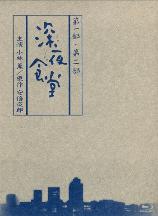 第一部・第二部
深夜食堂
主演 小林薫 原作 安倍夜郎